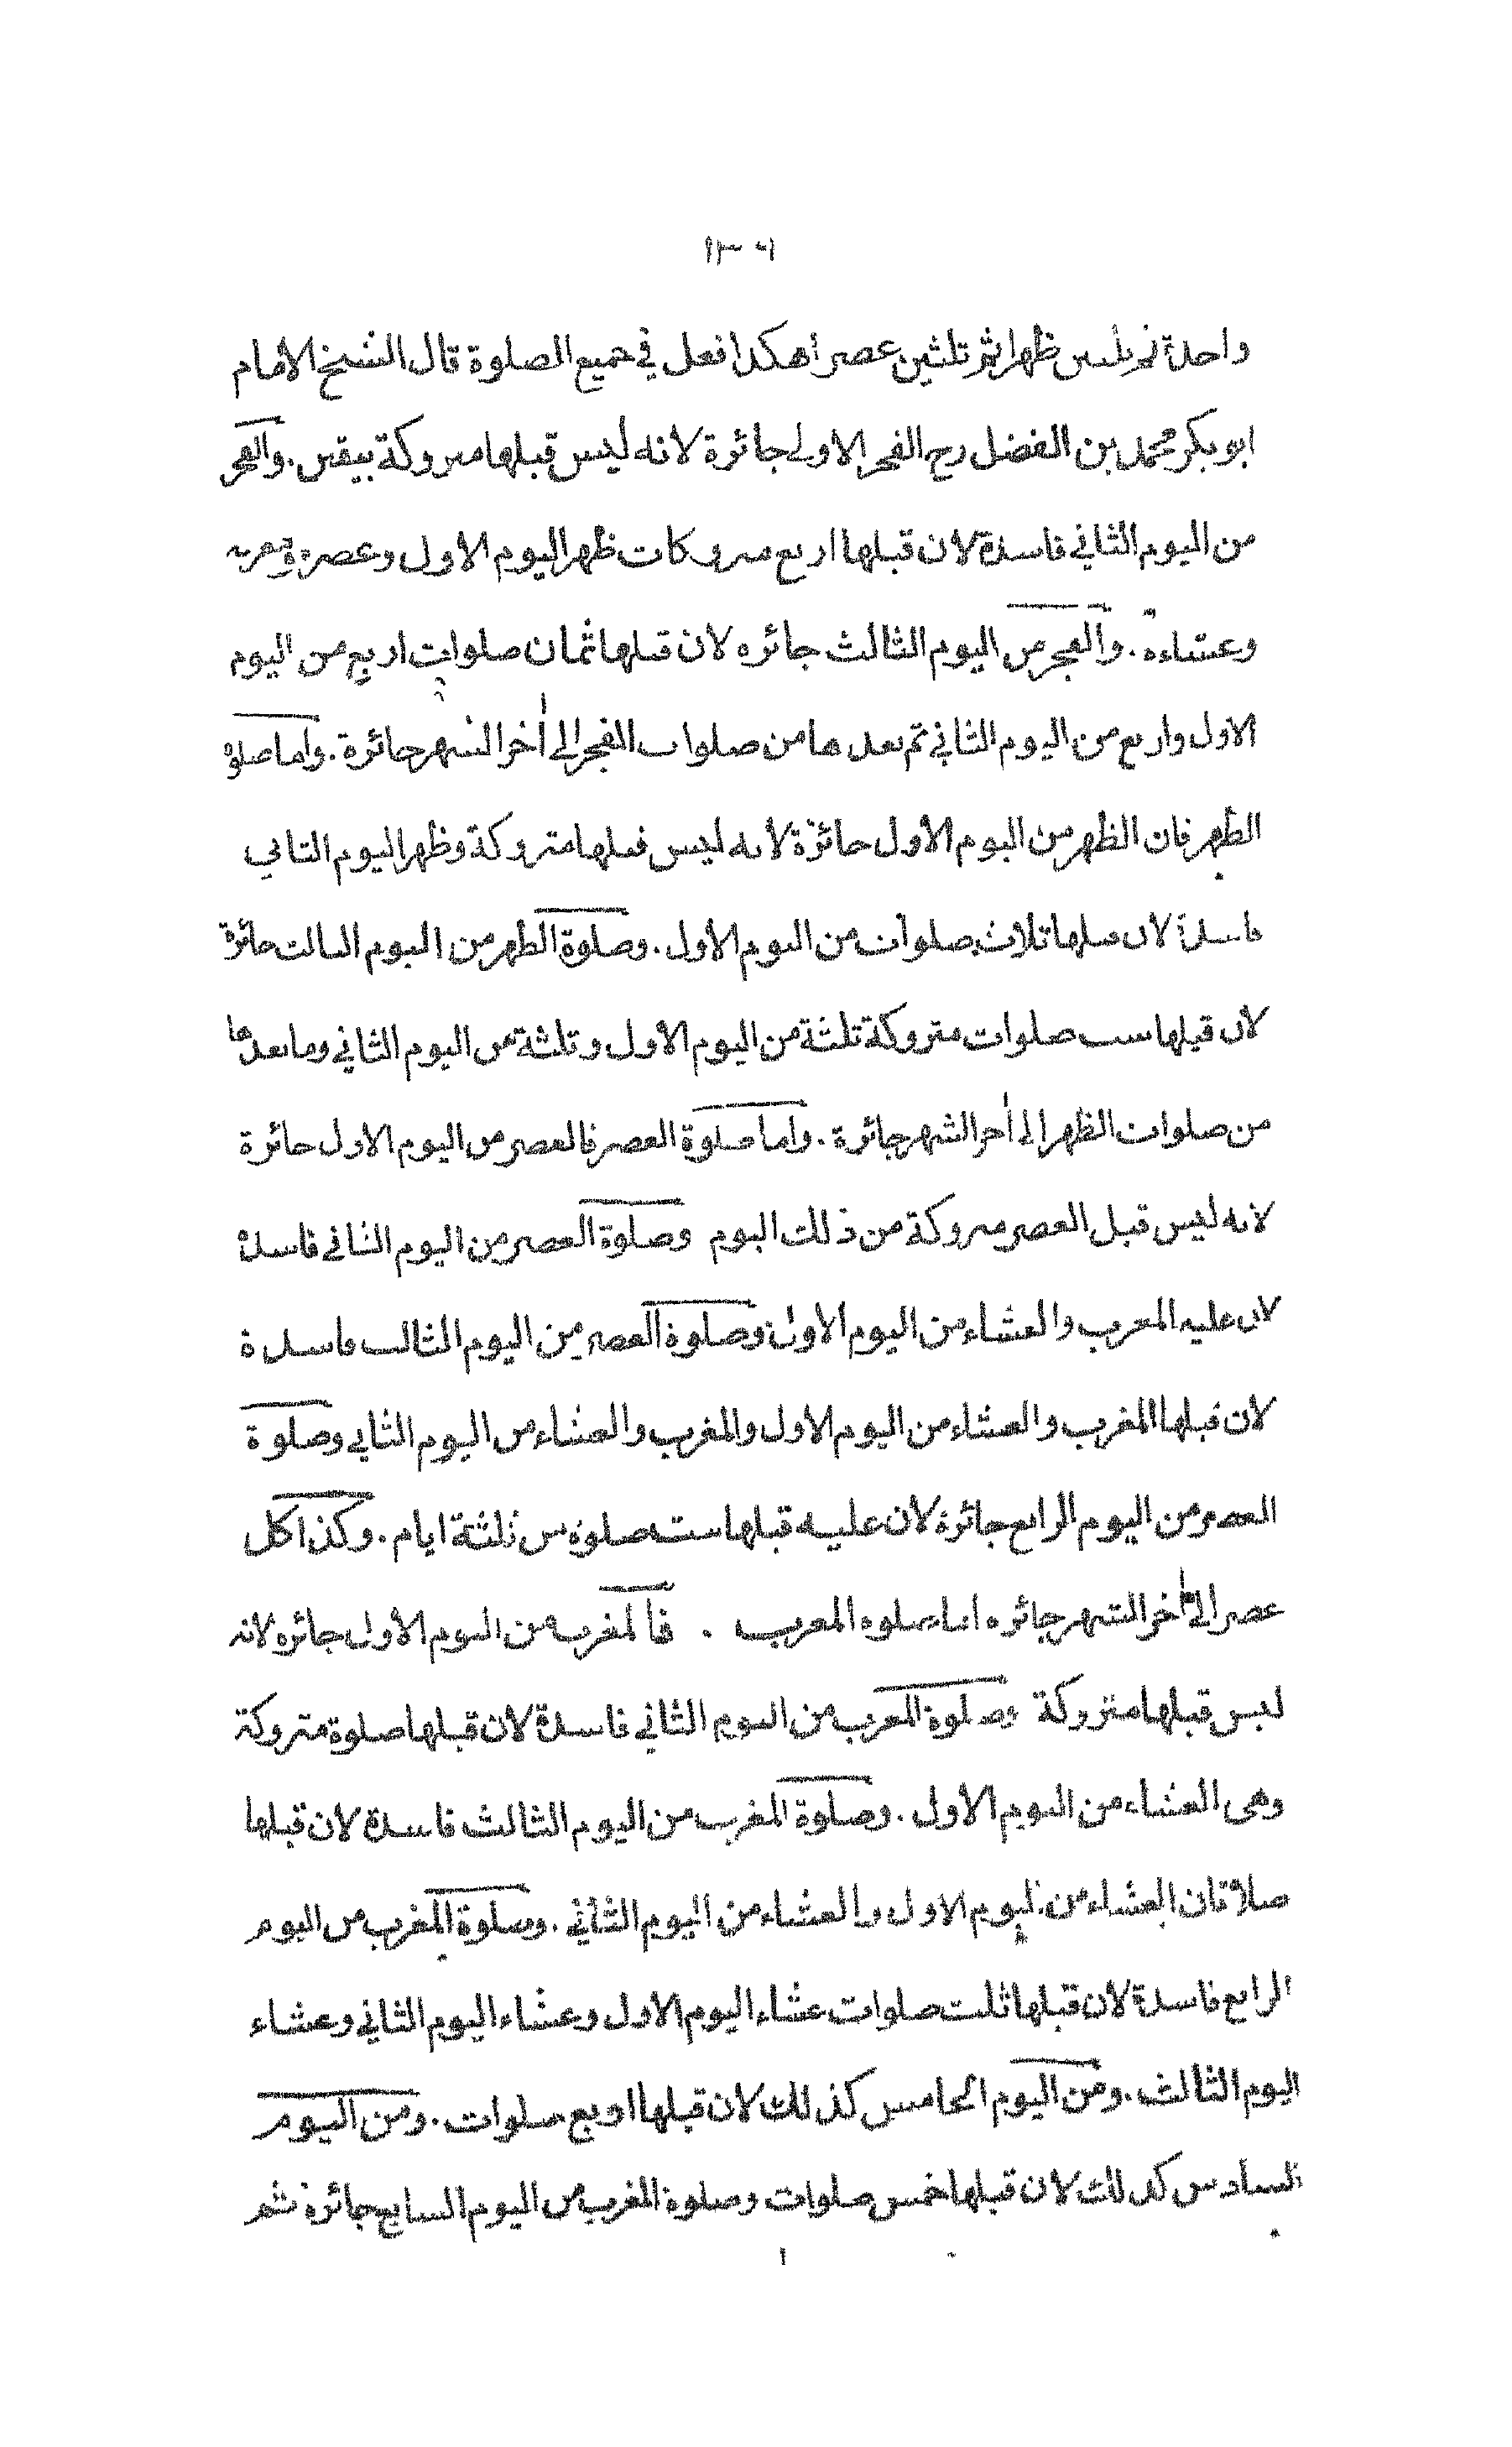 واحدة ثم ثلثين ظهرا ثم ثلثين عصرا هكذا فعل في جميع الصلوة قال الشيخ الامام
ابو بكر محمد بن الفضل رح الفجر الاولى جائزة لانه ليس قبلها متروكة بيقين. والفجر
من اليوم الثاني فاسدة لان قبلها اربع متروكات ظهر اليوم الاول وعصره ومغربه
وعشاءه. والفجر من اليوم الثالث جائزه لان قبلها ثمان صلوات اربع من اليوم
الاول واربع من اليوم الثاني ثم بعدها من صلوات الفجر الى أخر الشهر جائزة. واما صلوة
الظهر فان الظهر من اليوم الأول جائزة لانه ليس قبلها متروكة وظهر اليوم الثاني
فاسدة لان قبلها ثلاث صلوات من اليوم الأول. وصلوة الظهر من اليوم الثالث جائزة
لان قبلها ست صلوات متروكة ثلثة من اليوم الأول وثلثة من اليوم الثاني وما بعدها
من صلوات الظهر الى أخر الشهر جائزة. واما صلوة العصر فالعصر من اليوم الاول جائزة
لانه ليس قبل العصر متروكة من ذلك اليوم وصلوة العصر من اليوم الثاني فاسدة
لان عليه المغرب والعشاء من اليوم الأول وصلوة العصر من اليوم الثالث فاسدة
لان قبلها المغرب والعشاء من اليوم الاول والمغرب والعشاء من اليوم الثاني وصلوة
العصر من اليوم الرابع جائزة لان عليه قبلها ستة صلوة من ثلثة ايام. وكذا كل
عصر الى أخر الشهر جائزه اما صلوه المغرب . فالمغرب من اليوم الأول جائزه لانه
ليس قبلها متروكة وصلوة المغرب من اليوم الثاني فاسدة لان قبلها صلوة متروكة
وهى العشاء من اليوم الأول. وصلوة المغرب من اليوم الثالث فاسدة لان قبلها
صلاتان العشاء من اليوم الاول والعشاء من اليوم الثاني. وصلوة المغرب من اليوم
الرابع فاسدة لان قبلها ثلث صلوات عشاء اليوم الاول وعشاء اليوم الثاني وعشاء
اليوم الثالث. ومن اليوم الخامس كذلك لان قبلها اربع صلوات. ومن اليوم
السادس كذلك لان قبلها خمس صلوات وصلوة المغرب من اليوم السابع جائزة ثم